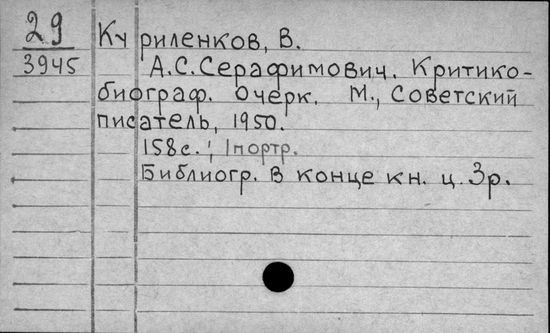 29 Куриленков, В.
3945 А.С.Серафимович. Критико-
биограф. очерк. М., Советский
писатель, 1950.
158с.; 1портр.
Библиогр. в конце кн. ц. 3р.